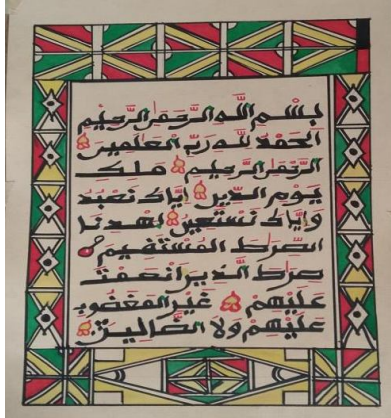 بِسْمِ اللَّهِ الرَّحْمَٰنِ الرَّحِيمِ
الْحَمْدُ لِلَّهِ رَبِّ الْعَالَمِينَ
الرَّحْمَٰنِ الرَّحِيمِ مَلِكِ
يَوْمِ الدِّينِ إِيَّاكَ نَعْبُدُ
وَإِيَّاكَ نَسْتَعِينُ اهْدِنَا
الصِّرَاطَ الْمُسْتَقِيمَ
صِرَاطَ الَّذِينَ أَنْعَمْتَ
عَلَيْهِمْ غَيْرِ الْمَغْضُوبِ
عَلَيْهِمْ وَلَا الضَّالِّينَ